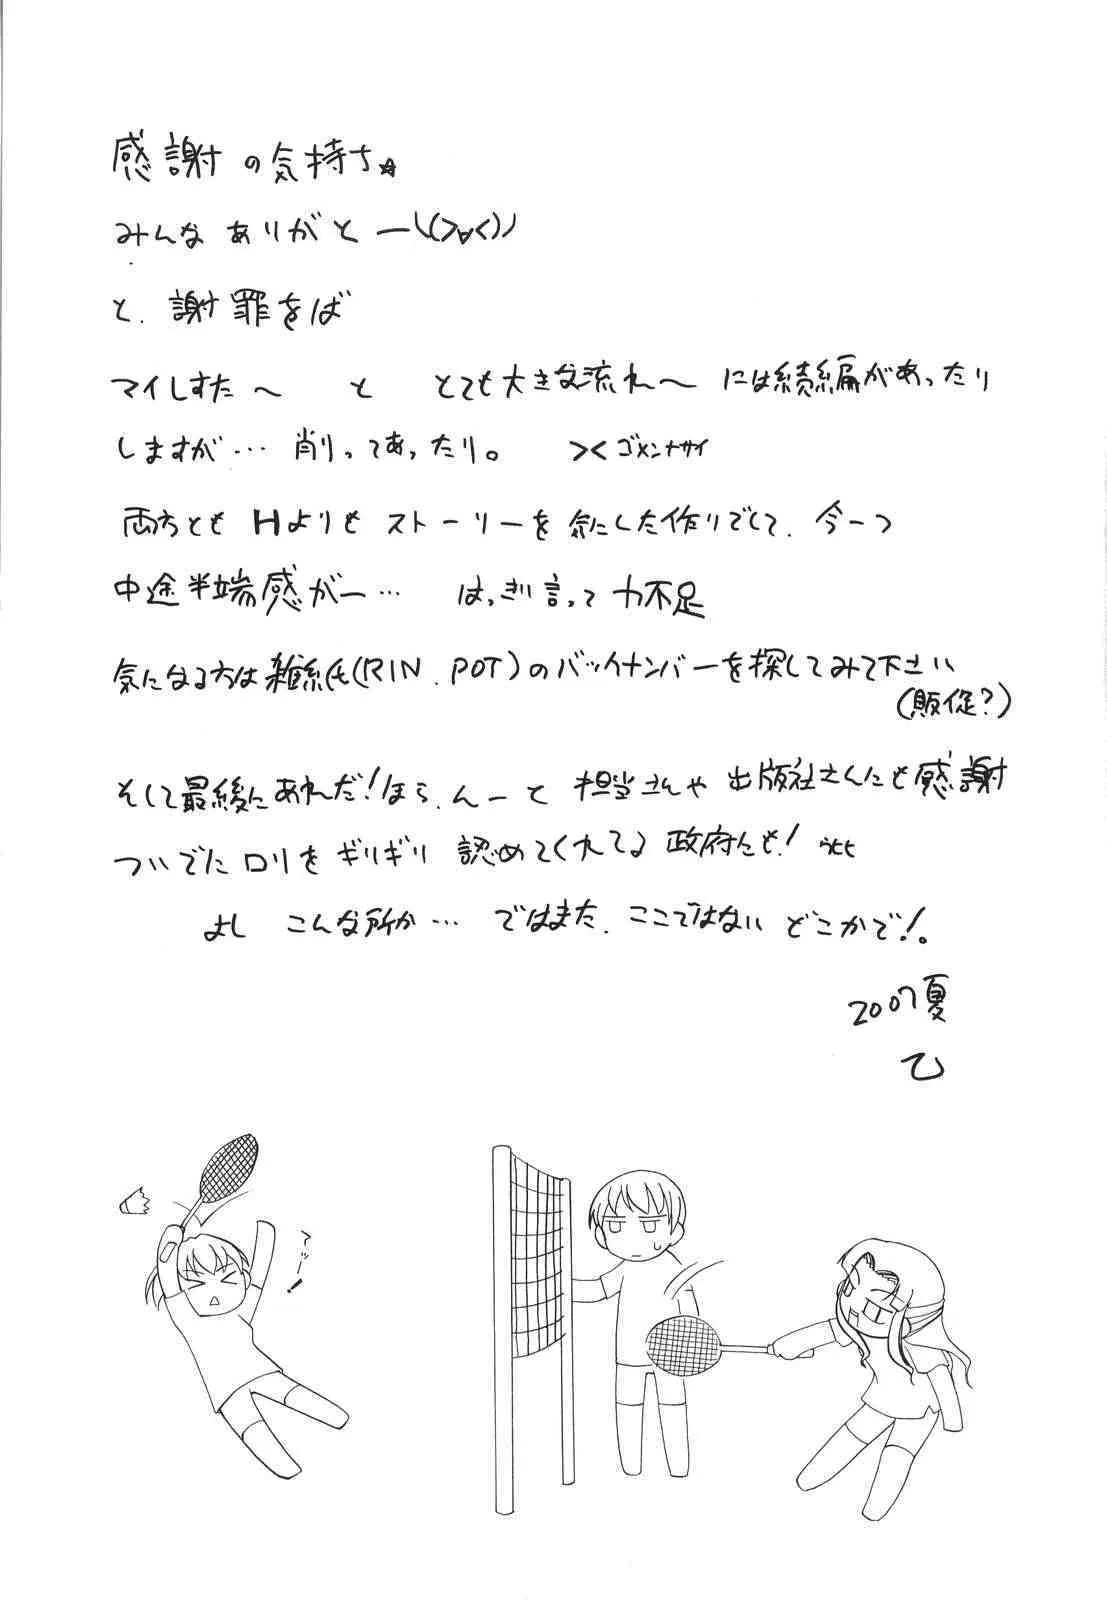 感謝の気持ち☆
みんなありがとー\(>∀<)ノ
と、謝罪をば
マイしすた～ と とても大きな流れ～ には続編があったり
しますが… 削ってあったり。 ><ゴメンナサイ
両方とも Hよりも ストーリーを気にした作りでして、今一つ
中途半端感がー… はっきり言って力不足
気になる方は雑紙(RIN、POT)のバックナンバーを探してみて下さい
(販促?)
そして最後にあれだ!ほら、んーと 担当さんや出版社さんにも感謝
ついでにロリをギリギリ認めてくれてる政府にも!
よし こんな所か… ではまた、ここではないどこかで!。
2007夏
乙
てぃー!